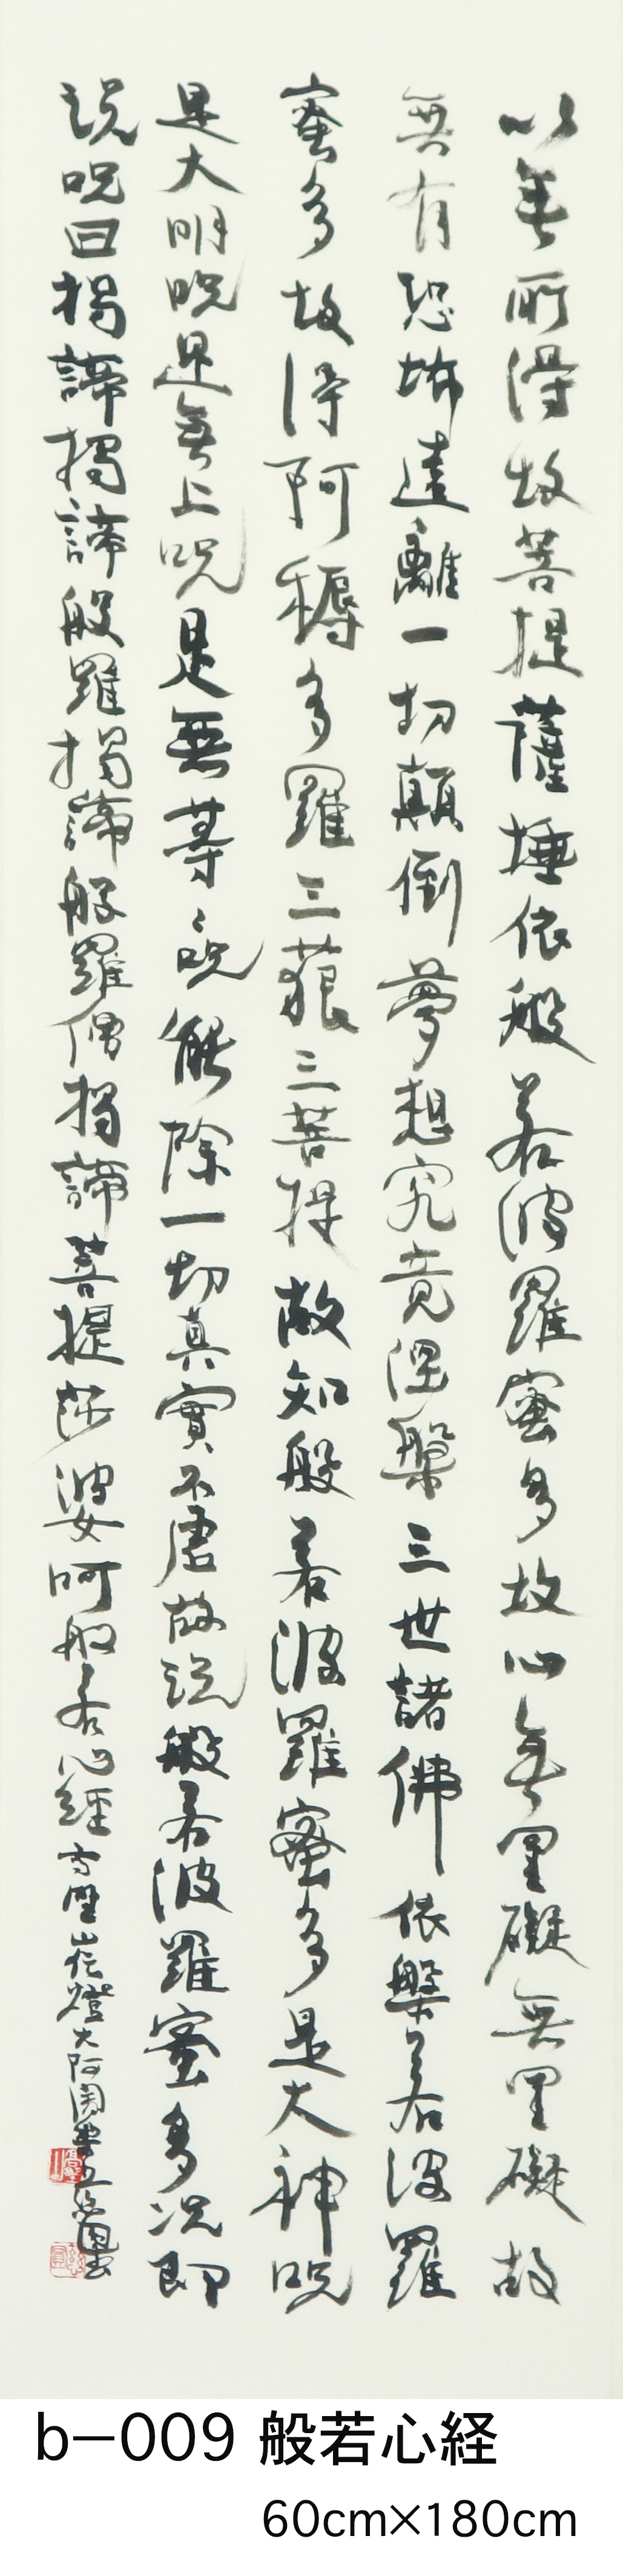 以無所得故菩提薩埵依般若波羅蜜多故心無罣礙無罣礙故
無有恐怖遠離一切顛倒夢想究竟涅槃三世諸佛依槃若波羅
蜜多故得阿耨多羅三藐三菩提故知般若波羅蜜多是大神呪
是大明呪是無上呪是無等々呪能除一切真實不虚故説般若波羅蜜多呪即
説呪曰揭諦揭諦般羅揭諦般羅僧揭諦菩提莎婆呵般若心経 大阿闍梨
b−009 般若心経
60cm×180cm